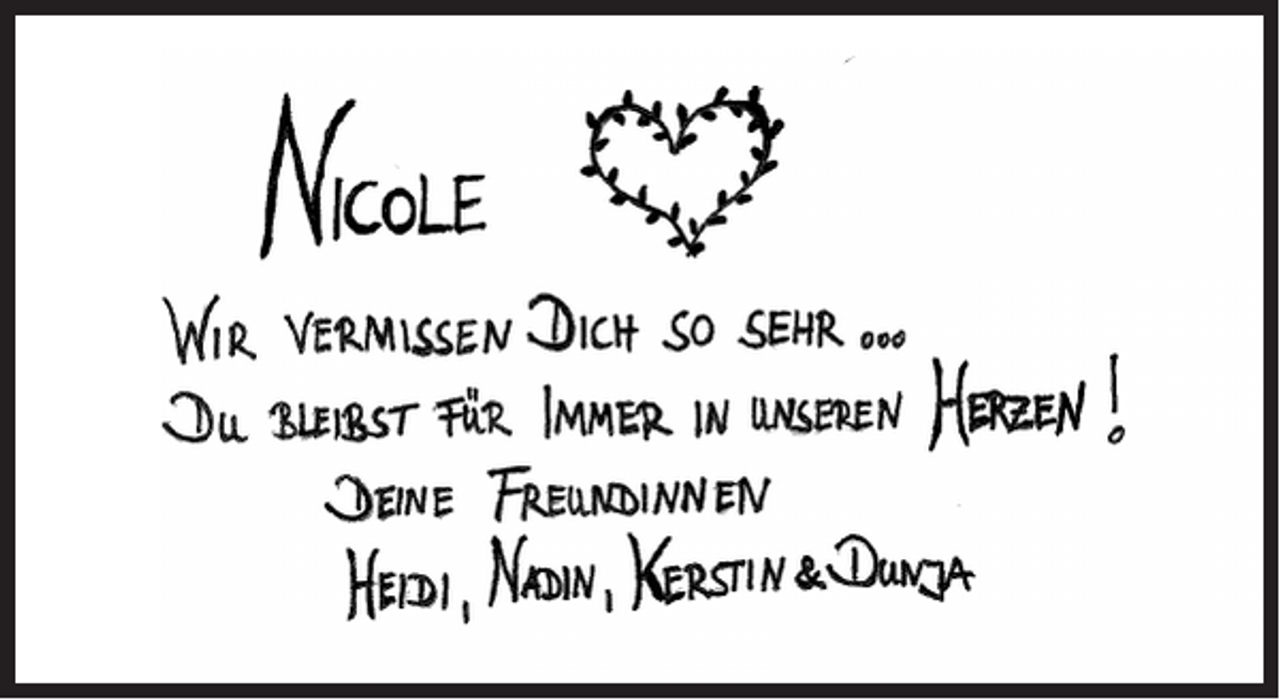 NICOLE
WIR VERMISSEN DICH SO SEHR ...
DU BLEIBST FÜR IMMER IN UNSEREN HERZEN !
DEINE FREUNDINNEN
HEIDI, NADIN, KERSTIN & DUNJA